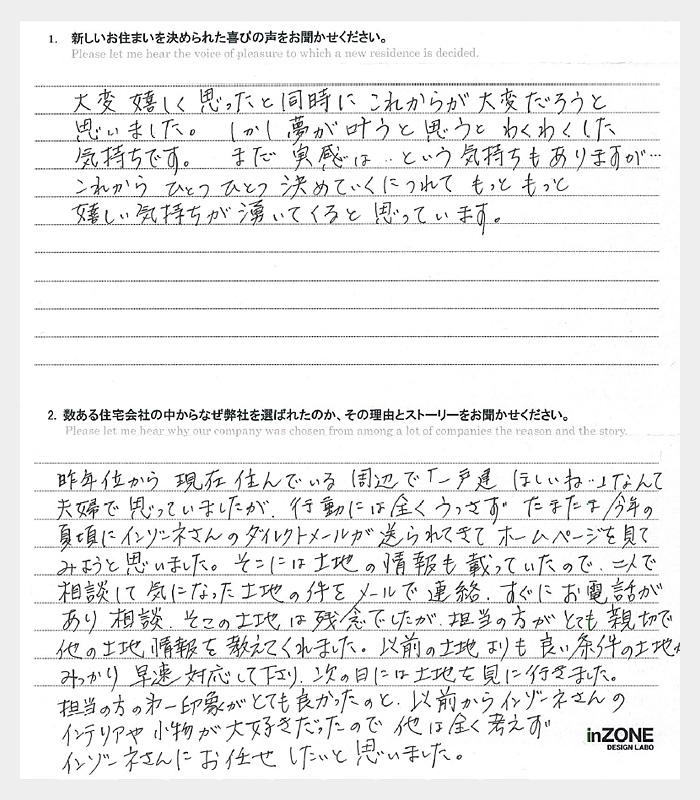 1. 新しいお住まいを決められた喜びの声をお聞かせください。
Please let me hear the voice of pleasure to which a new residence is decided.
大変 嬉しく 思ったと同時に これからが 大変だろうと
思いました。 しかし 夢が叶うと 思うと わくわくした
気持ちです。 まだ 実感は‥という 気持ちも ありますが…
これから ひとつ ひとつ 決めていくにつれて もっと もっと
嬉しい 気持ちが 湧いてくると 思っています。
2. 数ある住宅会社の中からなぜ弊社を選ばれたのか、その理由とストーリーをお聞かせください。
Please let me hear why our company was chosen from among a lot of companies the reason and the story.
昨年位から 現在 住んでいる 周辺で「一戸建 ほしいね‥」なんて
夫婦で 思っていましたが、行動には全く うつさず たまたま 今年の
夏頃にインゾーネさんの ダイレクトメールが 送られてきて ホームページを見て
みようと 思いました。そこには土地の情報も 載っていたので、二人で
相談して 気になった土地の件をメールで 連絡、すぐに お電話が
あり 相談、そこの土地は 残念でしたが、担当の方が とても 親切で
他の土地情報を 教えてくれました。以前の土地よりも 良い条件の土地が
みつかり 早速 対応して下さり、次の日には土地を 見に 行きました。
担当の方の第一印象がとても良かったのと、以前からインゾーネさんの
インテリアや 小物が 大好きだったので 他は全く 考えず
インゾーネさんに お任せ したいと 思いました。
inZONE
DESIGN LABO